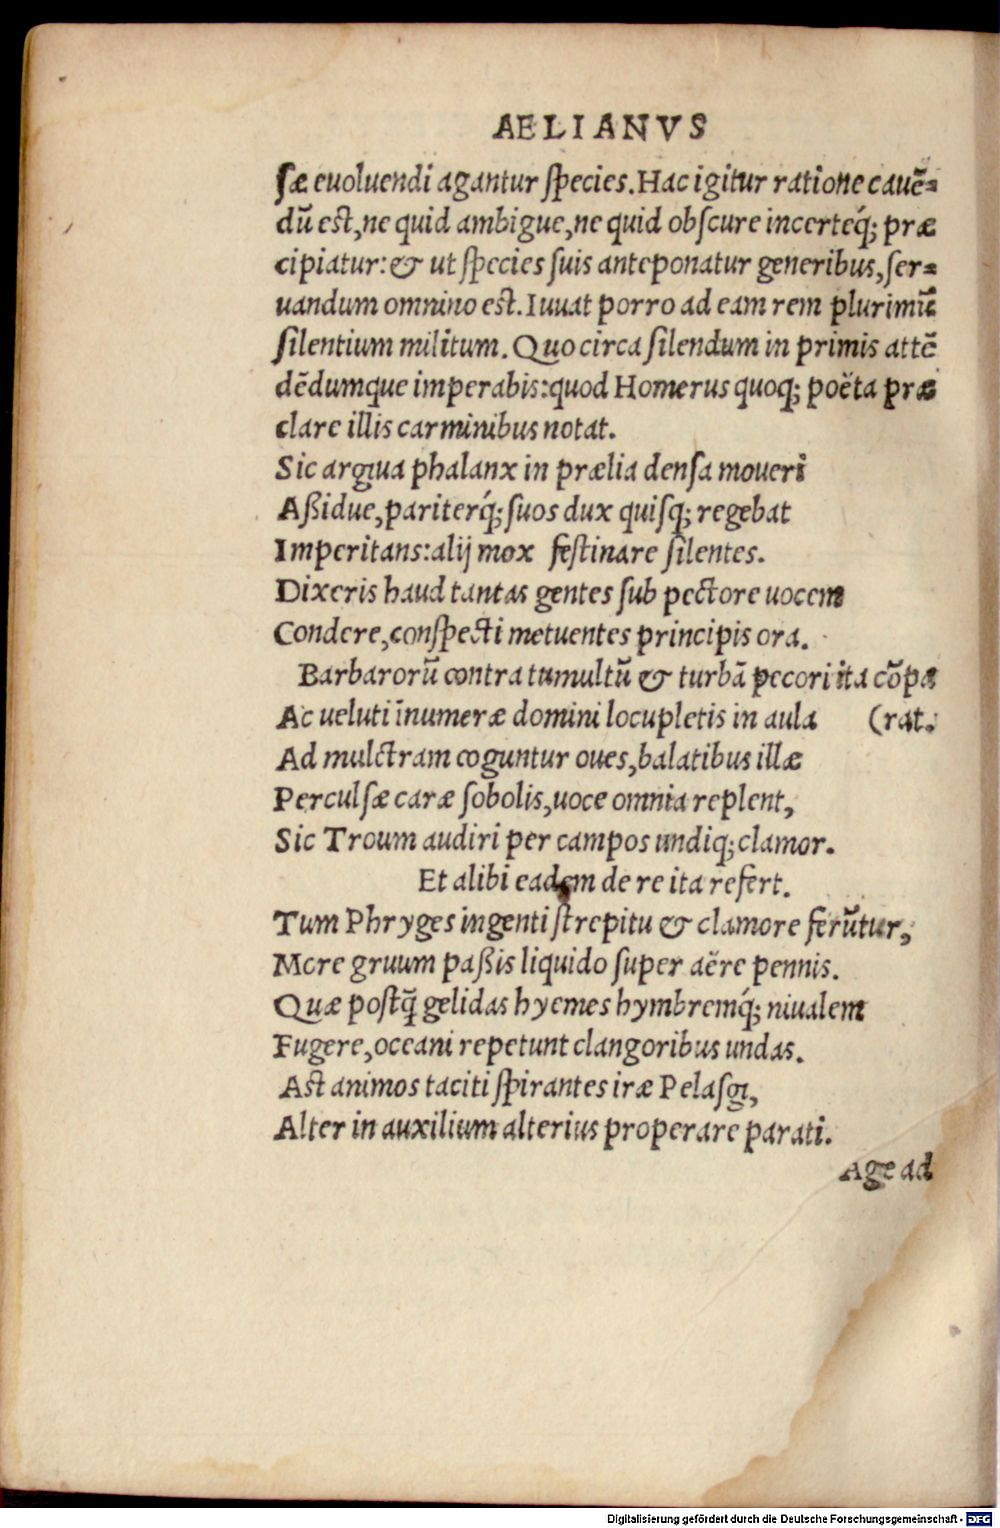 AELIANVS
ſæ euoluendi agantur ſpecies. Hac igitur ratione cauē-
dū eſt, ne quid ambigue, ne quid obſcure incerteq́; præ
cipiatur: & ut ſpecies ſuis anteponatur generibus, ſer-
uandum omnino eſt. Iuuat porro ad eam rem plurimū
ſilentium militum. Quo circa ſilendum in primis attē
dēdumque imperabis: quod Homerus quoq; poëta præ
clare illis carminibus notat.
Sic argiua phalanx in prælia denſa moueri
Aßidue, pariterq́; ſuos dux quiſq; regebat
Imperitans: alij mox feſtinare ſilentes.
Dixeris haud tantas gentes ſub pectore uocem
Condere, conſpecti metuentes principis ora.
Barbarorū contra tumultū & turbā pecori ita cōpa
Ac ueluti īnumeræ domini locupletis in aula (rat.
Ad mulctram coguntur oues, balatibus illæ
Perculſæ caræ ſobolis, uoce omnia replent,
Sic Troum audiri per campos undiq; clamor.
Et alibi eadem de re ita refert.
Tum Phryges ingenti ſtrepitu & clamore ferūtur,
More gruum paßis liquido ſuper aëre pennis.
Quæ poſtq̄ gelidas hyemes hymbremq́; niualem
Fugere, oceani repetunt clangoribus undas.
Aſt animos taciti ſpirantes iræ Pelaſgi,
Alter in auxilium alterius properare parati.
Age ad
Digitalisierung gefördert durch die Deutsche Forschungsgemeinschaft - DFG